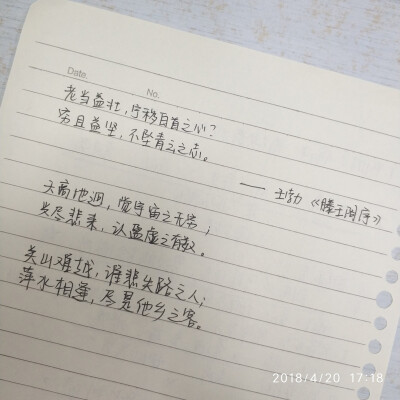 Date.
No.
老当益壮，宁移白首之心？
穷且益坚，不坠青云之志。
—— 王勃《滕王阁序》
天高地迥，觉宇宙之无穷；
兴尽悲来，认盈虚之有数。
关山难越，谁悲失路之人；
萍水相逢，尽是他乡之客。
2018/4/20 17:18